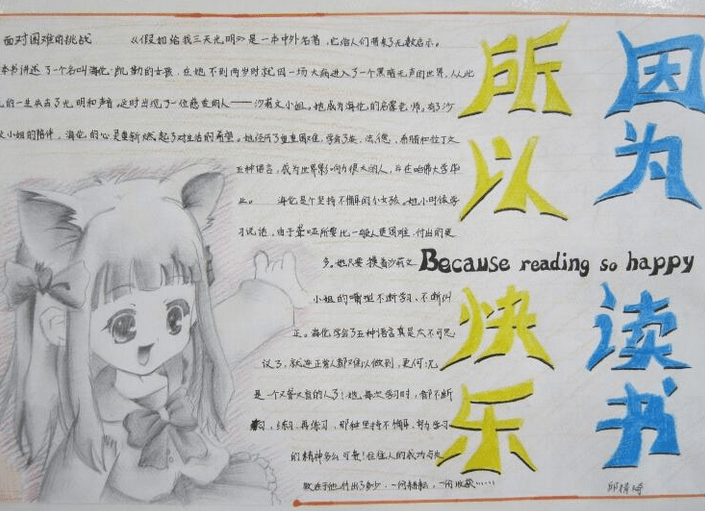 面对困难的挑战 《假如给我三天光明》是一本中外名著，它给人们带来了无数启示。
本书讲述了一个名叫海伦·凯勒的女孩，在她不到两岁时就因一场大病进入了一个黑暗无声的世界，从此
的一生失去了光明和声音。这时出现了一位慈爱的人——沙莉文小姐。她成为海伦的启蒙老师。有了沙
文小姐的陪伴，海伦的心是重新燃起了对生活的希望。她经历了重重困难，学会了英、法、德、希腊和拉丁文
五种语言，成为世界影响力很大的人，并在哈佛大学毕
业。 海伦是个坚持不懈的小女孩。她小时候学
习说话，由于聋哑所要比一般人更困难，付出的更
多。她只要摸着沙莉文
小姐的嘴型不断学习、不断纠
正。海伦学会了五种语言真是太不可思
议了，就连正常人都难以做到，更何况
是一个又聋又盲的人了！她每次学习时，都不断
习，练习，再练习，那种坚持不懈，努力学习
的精神多么可贵！往往人的成功与失
败在于他付出了多少，一份耕耘，一份收获……
因为
读书
所以
快乐
Because reading so happy